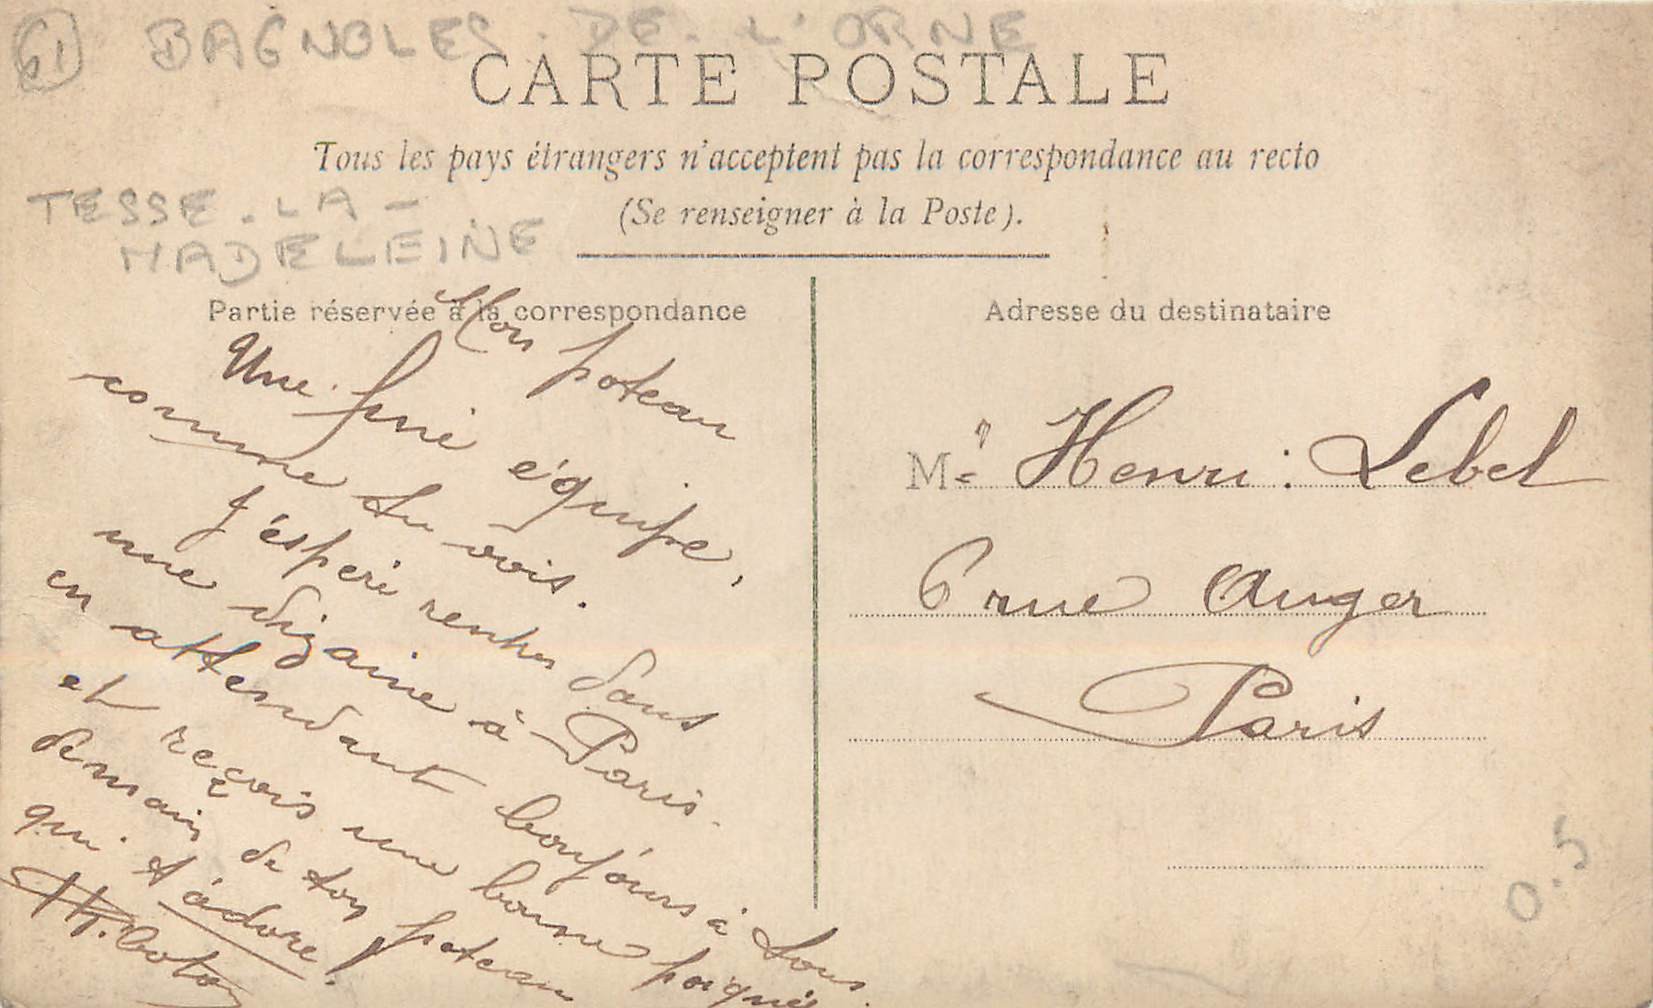 61 BAGNOLES. DE. L'ORNE
CARTE POSTALE
Tous les pays étrangers n'acceptent pas la correspondance au recto
(Se renseigner à la Poste).
TESSE. LA -
MADELEINE
Partie réservée à la correspondance
Mon poteau
Une equipe,
comme tu vois.
J'éspere rentrer dans
une dizaine à Paris.
en attendant bonjours à tous.
et reçois une bonne poignée
demain de ton poteau
qui t'adore!
Adresse du destinataire
Mr Henri Lebel
6 rue Auger
Paris
0.5